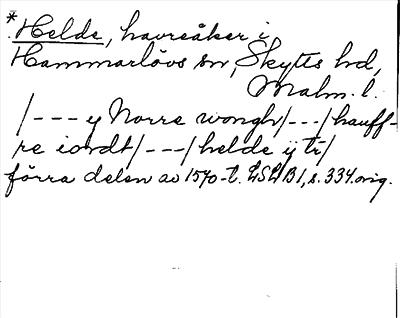 *Helde, havreåker i
Hammarlövs sn, Skytts hd,
Malm. l.
/--- y Norre wongh/---/hauff-
re iordt/---/helde ÿ tr/
förra delen av 1570-t. LSLB1, s. 334 orig.